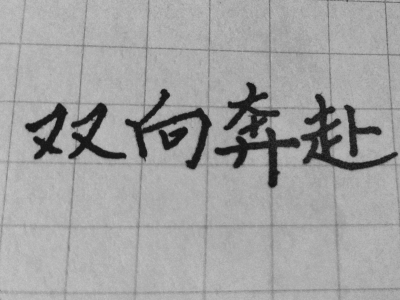 双向奔赴